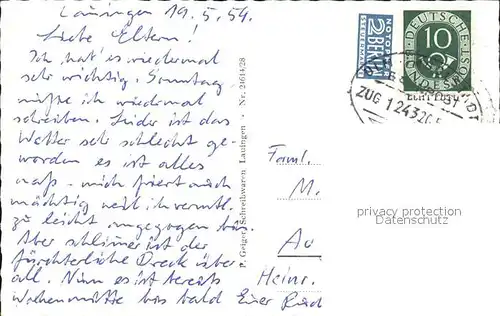 Lauingen 19.5.54
Liebe Eltern!
Ich hat's wiedermal
sehr wichtig. Sonntag
müßte ich wiedermal
schreiben. Leider ist das
Wetter sehr schlecht ge-
worden es ist alles
naß - mich friert auch
mächtig weil ich vermtl.
zu leicht angezogen bin.
Aber schlimmer ist der
fürchterliche Dreck über
all. Nun es ist bereits
Wochenmitte bis bald Euer
P. Geiger, Schreibwaren Lauingen Nr. 21614/28
NOTOPFER
2 BERLIN
STEUERMARKE
DEUTSCHE BUNDESPOST
10
BAHNPOST
ZUG 1243
Faml.
M.
Au
Heinr.
privacy protection
Datenschutz